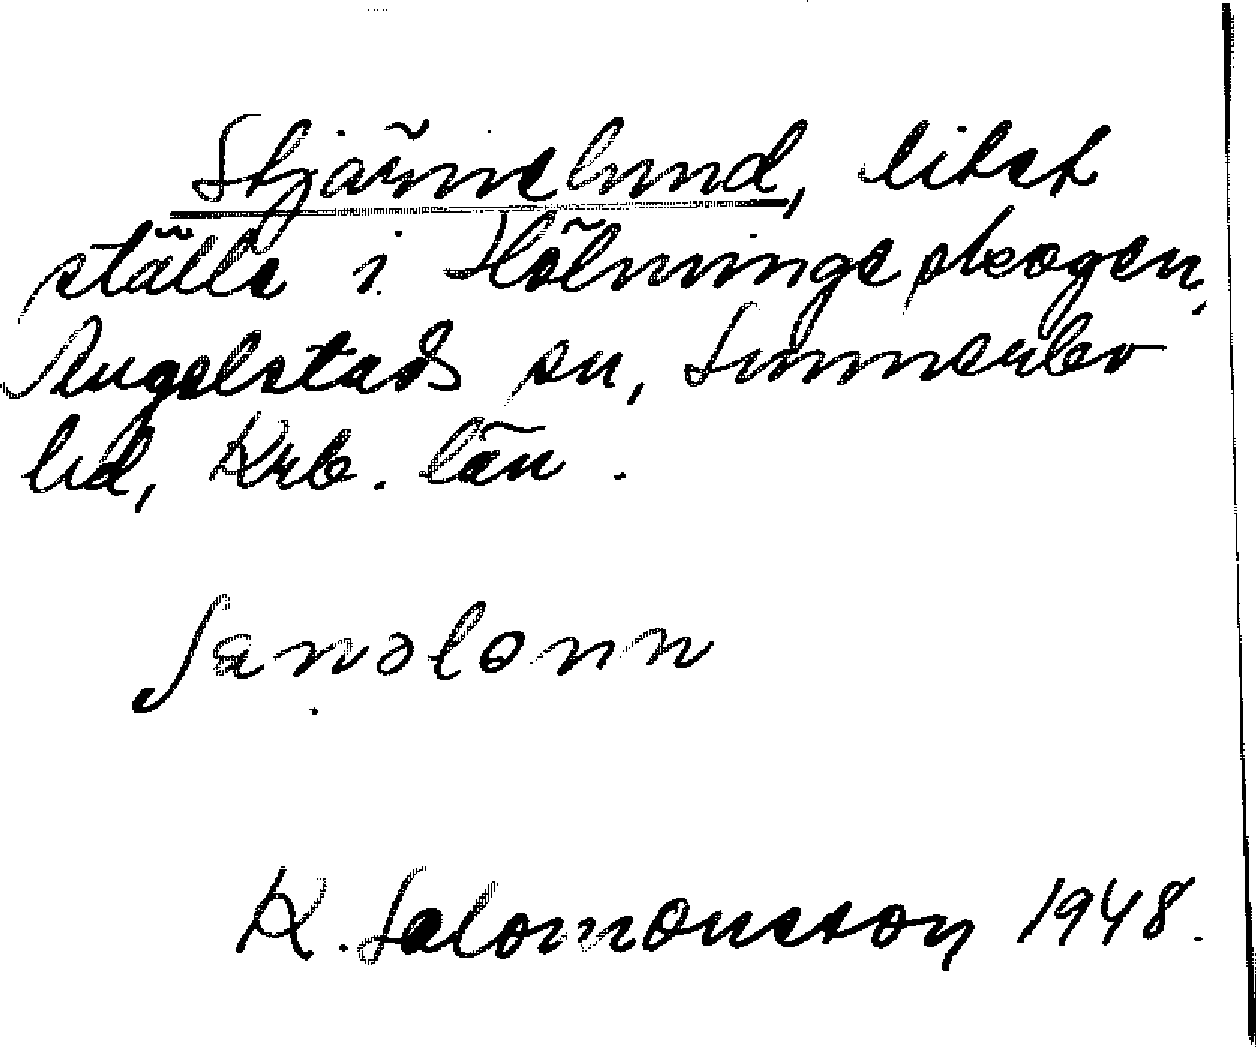 Stjärnelund, litet
ställe i Hölmingeskogen,
Angelstads sn, Sunnerbo
hd, Krb. län.
K. Salomonsson 1948.